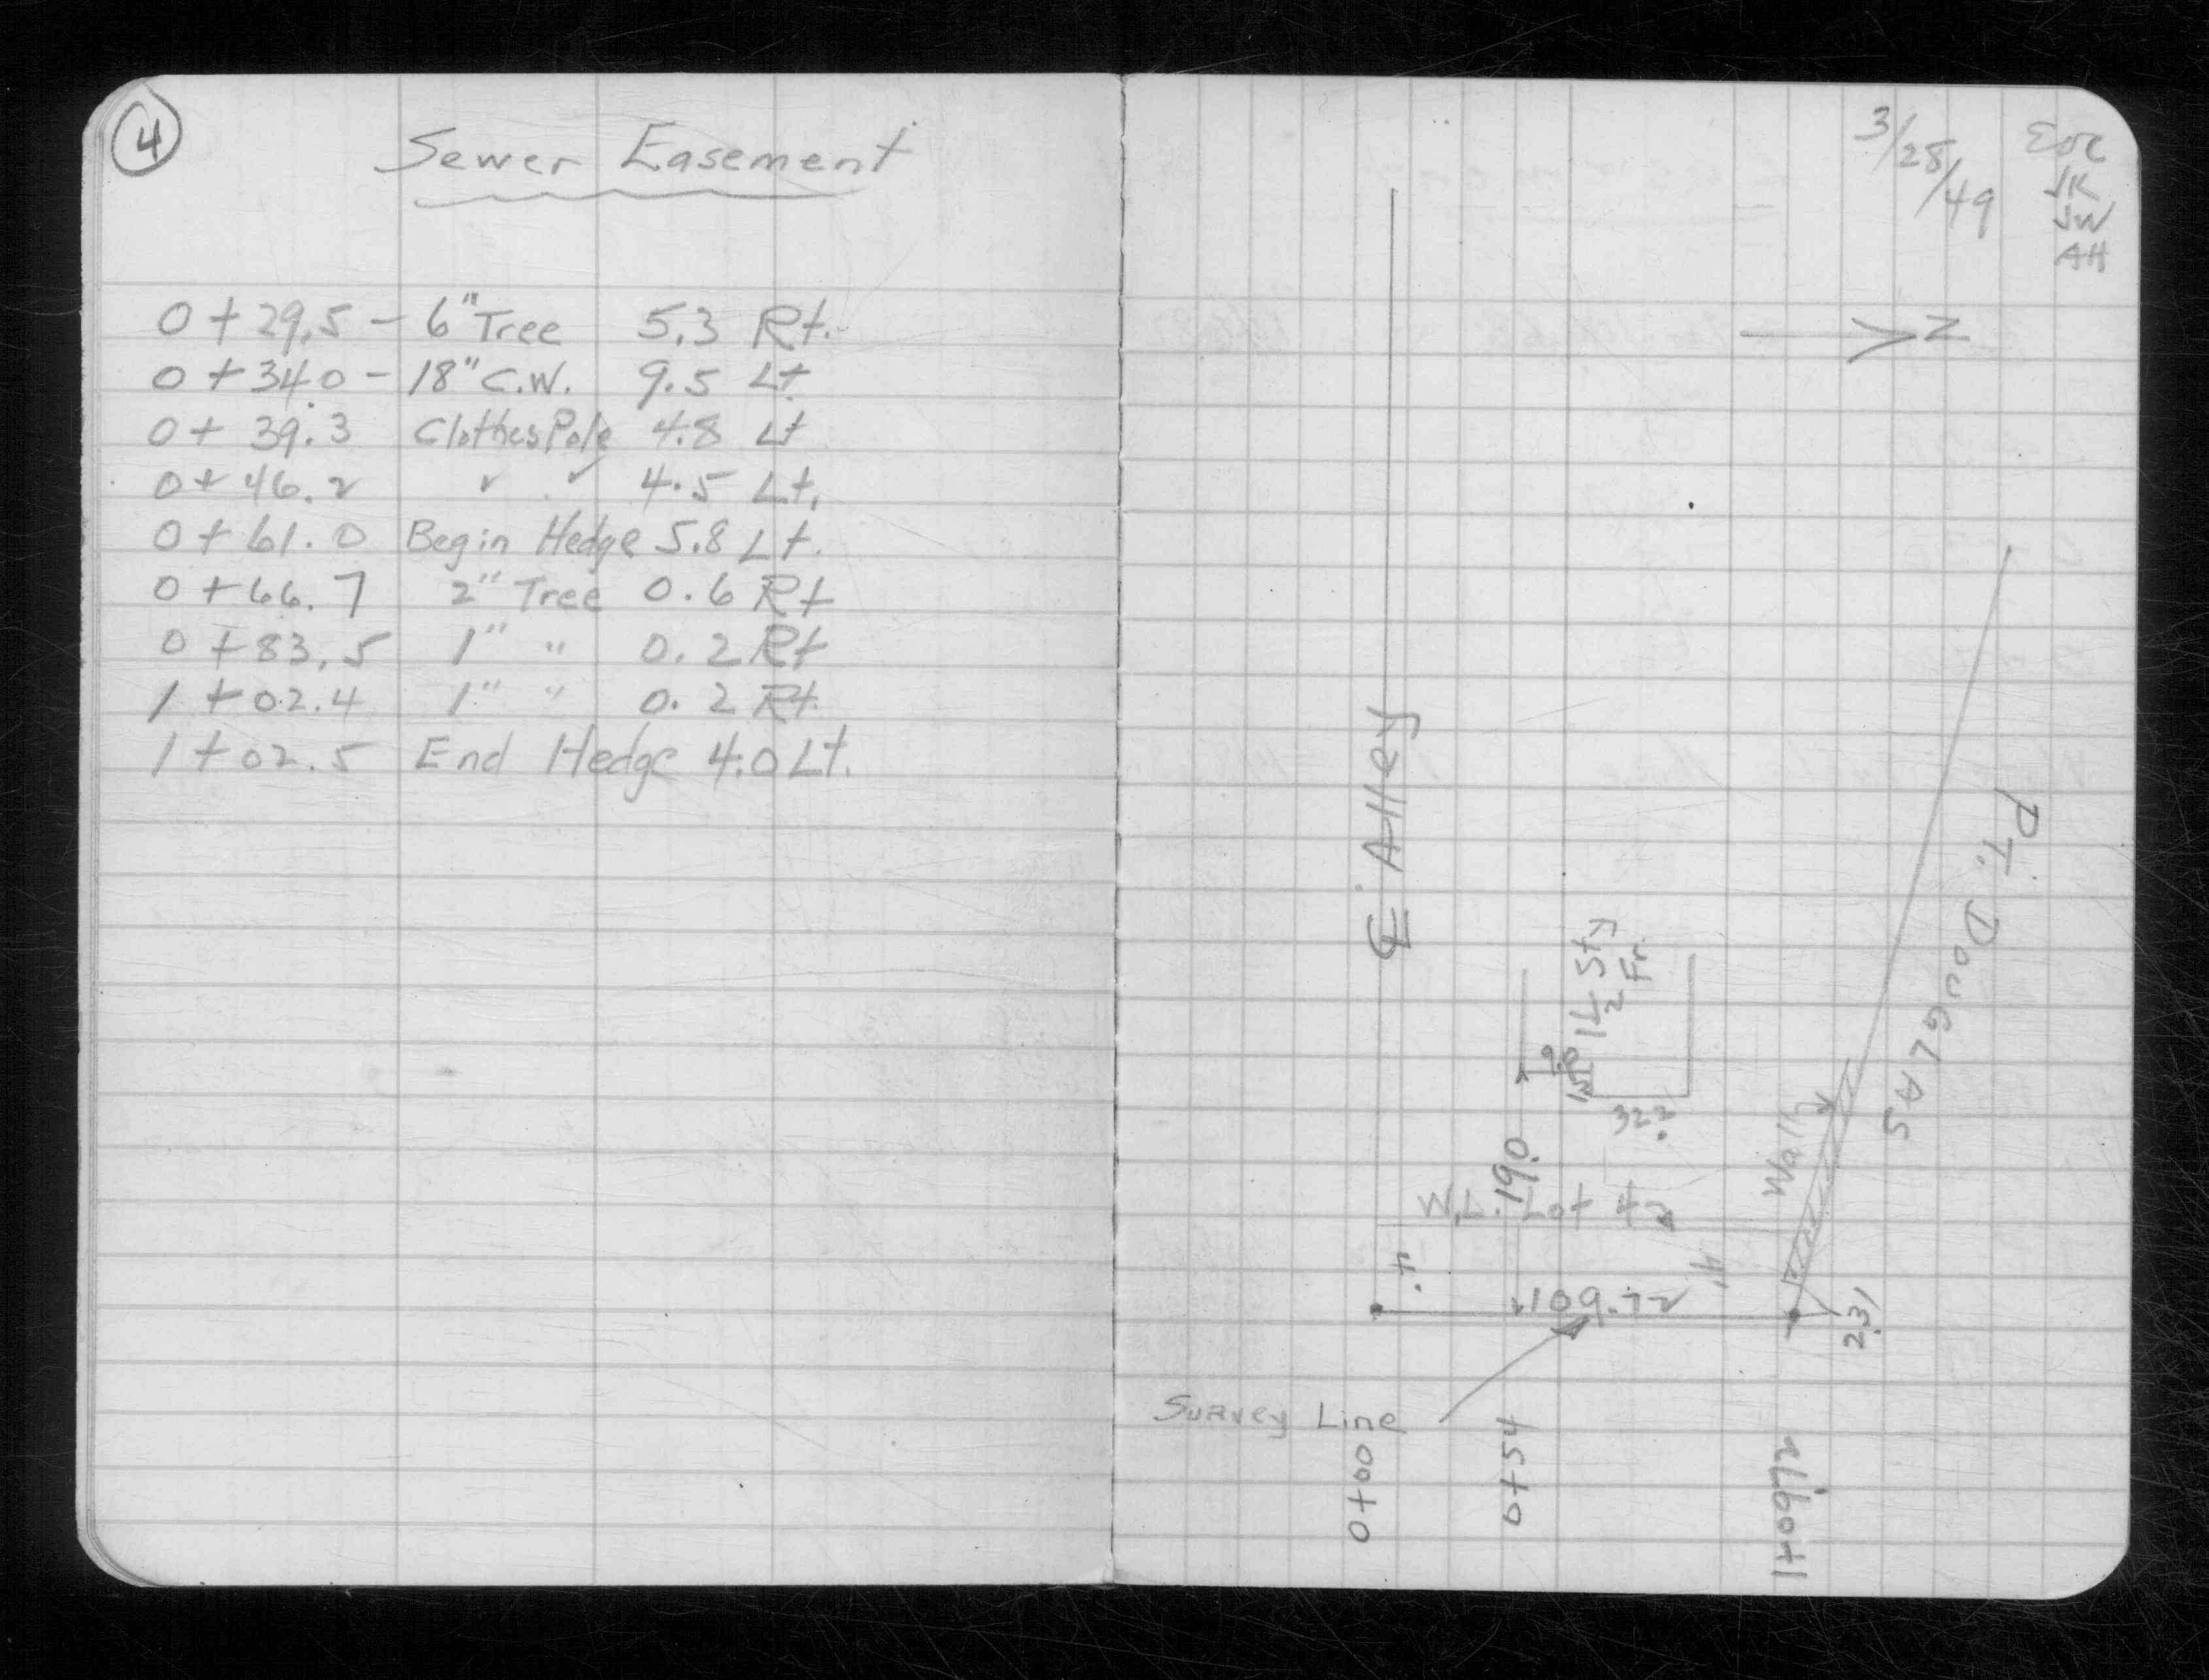 4
Sewer Easement
0+29.5 - 6" Tree 5.3 Rt.
0+34.0 - 18" C.W. 9.5 Lt
0+39.3 Clothes Pole 4.8 Lt
0+46.2 " " 4.5 Lt.
0+61.0 Begin Hedge 5.8 Lt.
0+66.7 2" Tree 0.6 Rt
0+83.5 1" " 0.2 Rt
1+02.4 1" " 0.2 Rt.
1+02.5 End Hedge 4.0 Lt.
3/28/49
JK
JW
AH
N
℄ Alley
PT. DOUGLAS
1½ Sty
Fr.
32.2
Wall
19.0
W.L. Lot 42
4'
4'
109.72
2.31
Survey Line
0+00
0+54
1+09.72